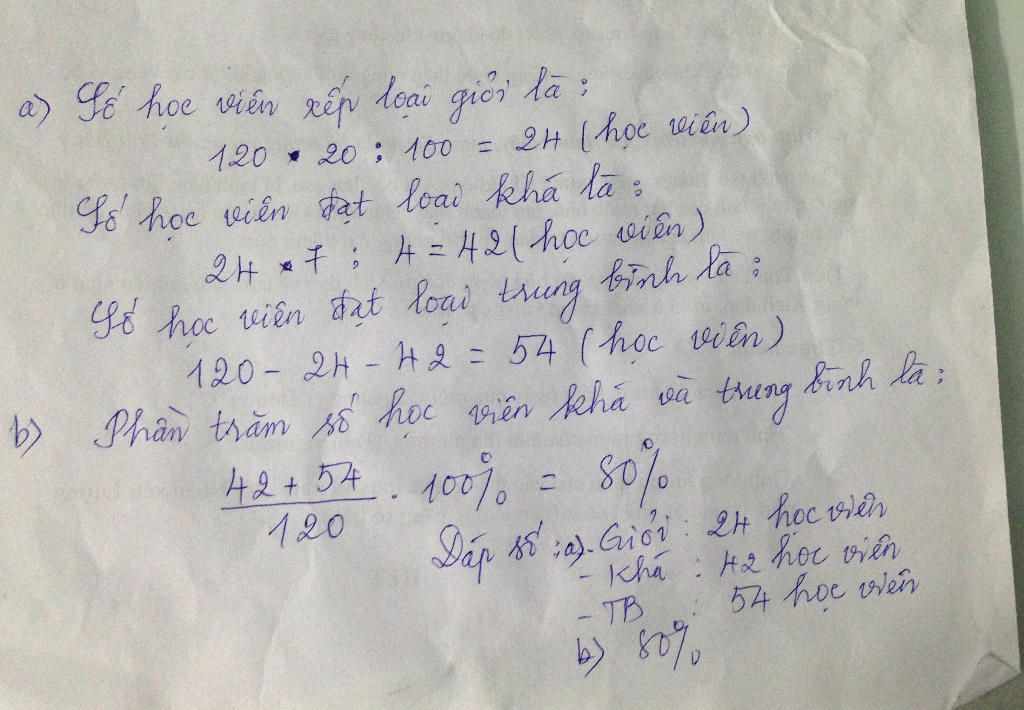 a) Số học viên xếp loại giỏi là :
120 . 20 : 100 = 24 (học viên)
Số học viên đạt loại khá là :
24 . 7 : 4 = 42 (học viên)
Số học viên đạt loại trung bình là :
120 - 24 - 42 = 54 (học viên)
b) Phần trăm số học viên khá và trung bình là :
42 + 54
120
. 100% = 80%
Đáp số : a) - Giỏi : 24 học viên
- Khá : 42 học viên
- TB : 54 học viên
b) 80%